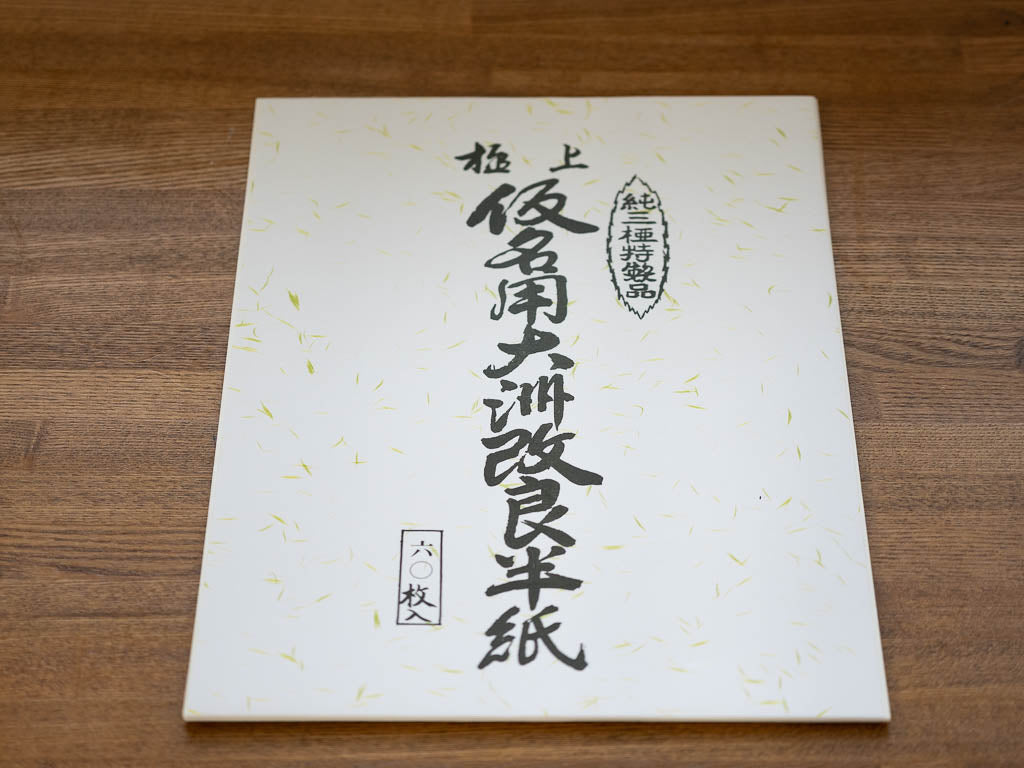 極上
純三椏特製品
仮名用大洲改良半紙
六〇枚入